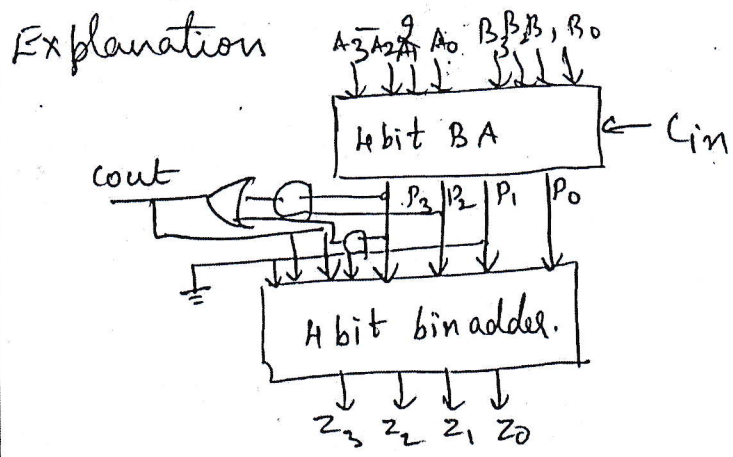 Explanation
A3 A2 A1 A0 B3 B2 B1 B0
4 bit BA
Cin
cout
P3 P2 P1 P0
4 bit bin adder.
Z3 Z2 Z1 Z0